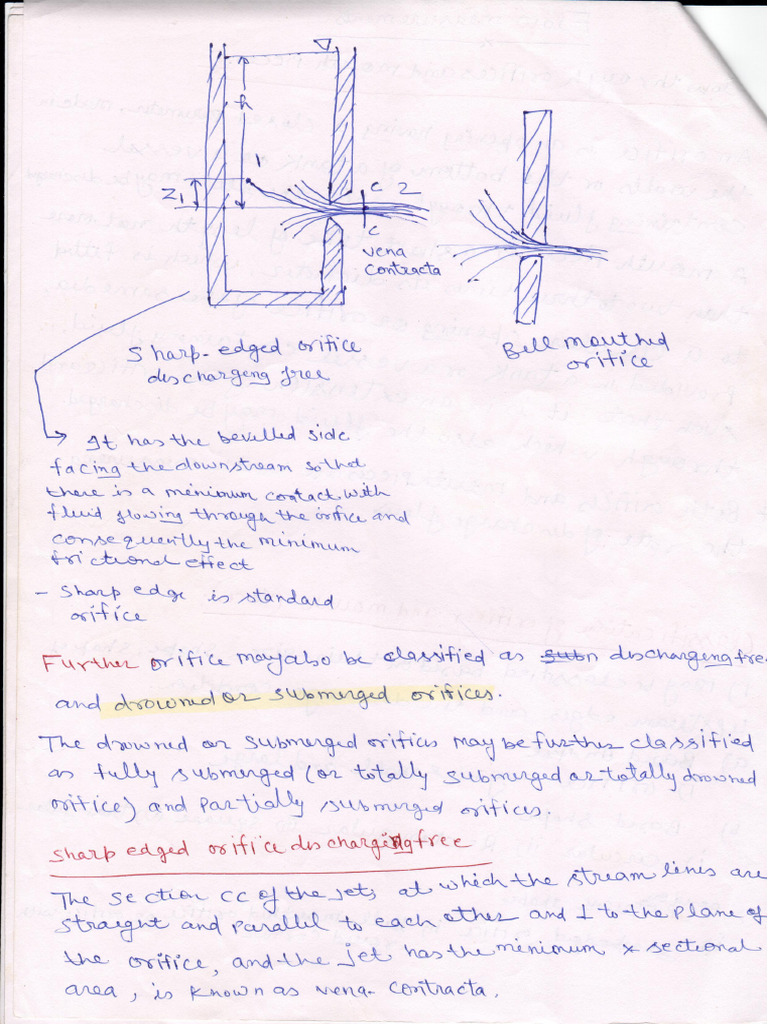 h
1
Z1
c 2
c
vena
contracta
Sharp-edged orifice
dischargeng free
Bell mouthed
orifice
→ It has the bevelled side
facing the downstream so that
there is a minimum contact with
fluid flowing through the orifice and
consequently the minimum
frictional effect
- Sharp edge is standard
orifice
Further orifice may also be classified as subn discharging free
and drowned or submerged orifices.
The drowned or submerged orifices may be further classified
as fully submerged (or totally submerged or totally drowned
orifice) and partially submerged orifices.
Sharp edged orifice discharging free
The section CC of the jets at which the stream lines are
straight and parallel to each other and ⊥ to the plane of
the orifice, and the jet has the minimum x sectional
area, is known as vena-contracta.